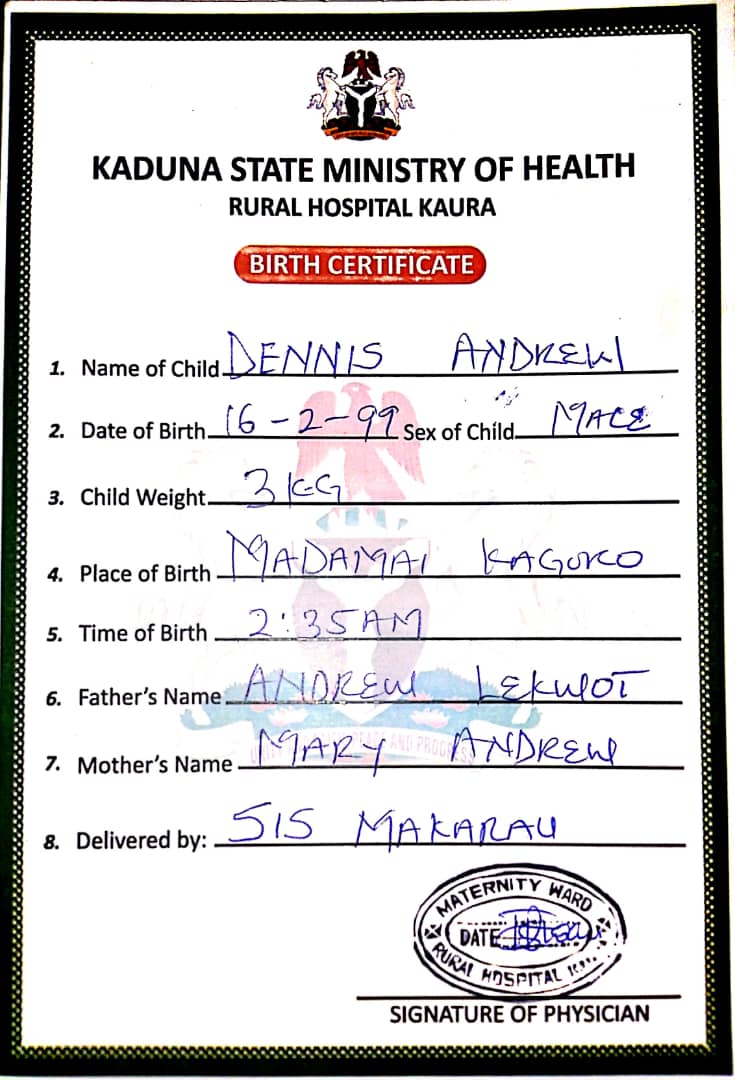 KADUNA STATE MINISTRY OF HEALTH
RURAL HOSPITAL KAURA
BIRTH CERTIFICATE
1. Name of Child DENNIS ANDREW
2. Date of Birth 16-2-99 Sex of Child MALE
3. Child Weight 3KG
4. Place of Birth MADAMAI KAGORO
5. Time of Birth 2:35AM
6. Father's Name ANDREW LEKWOT
7. Mother's Name MARY ANDREW
8. Delivered by: SIS MAKARAU
MATERNITY WARD
DATE
RURAL HOSPITAL
SIGNATURE OF PHYSICIAN